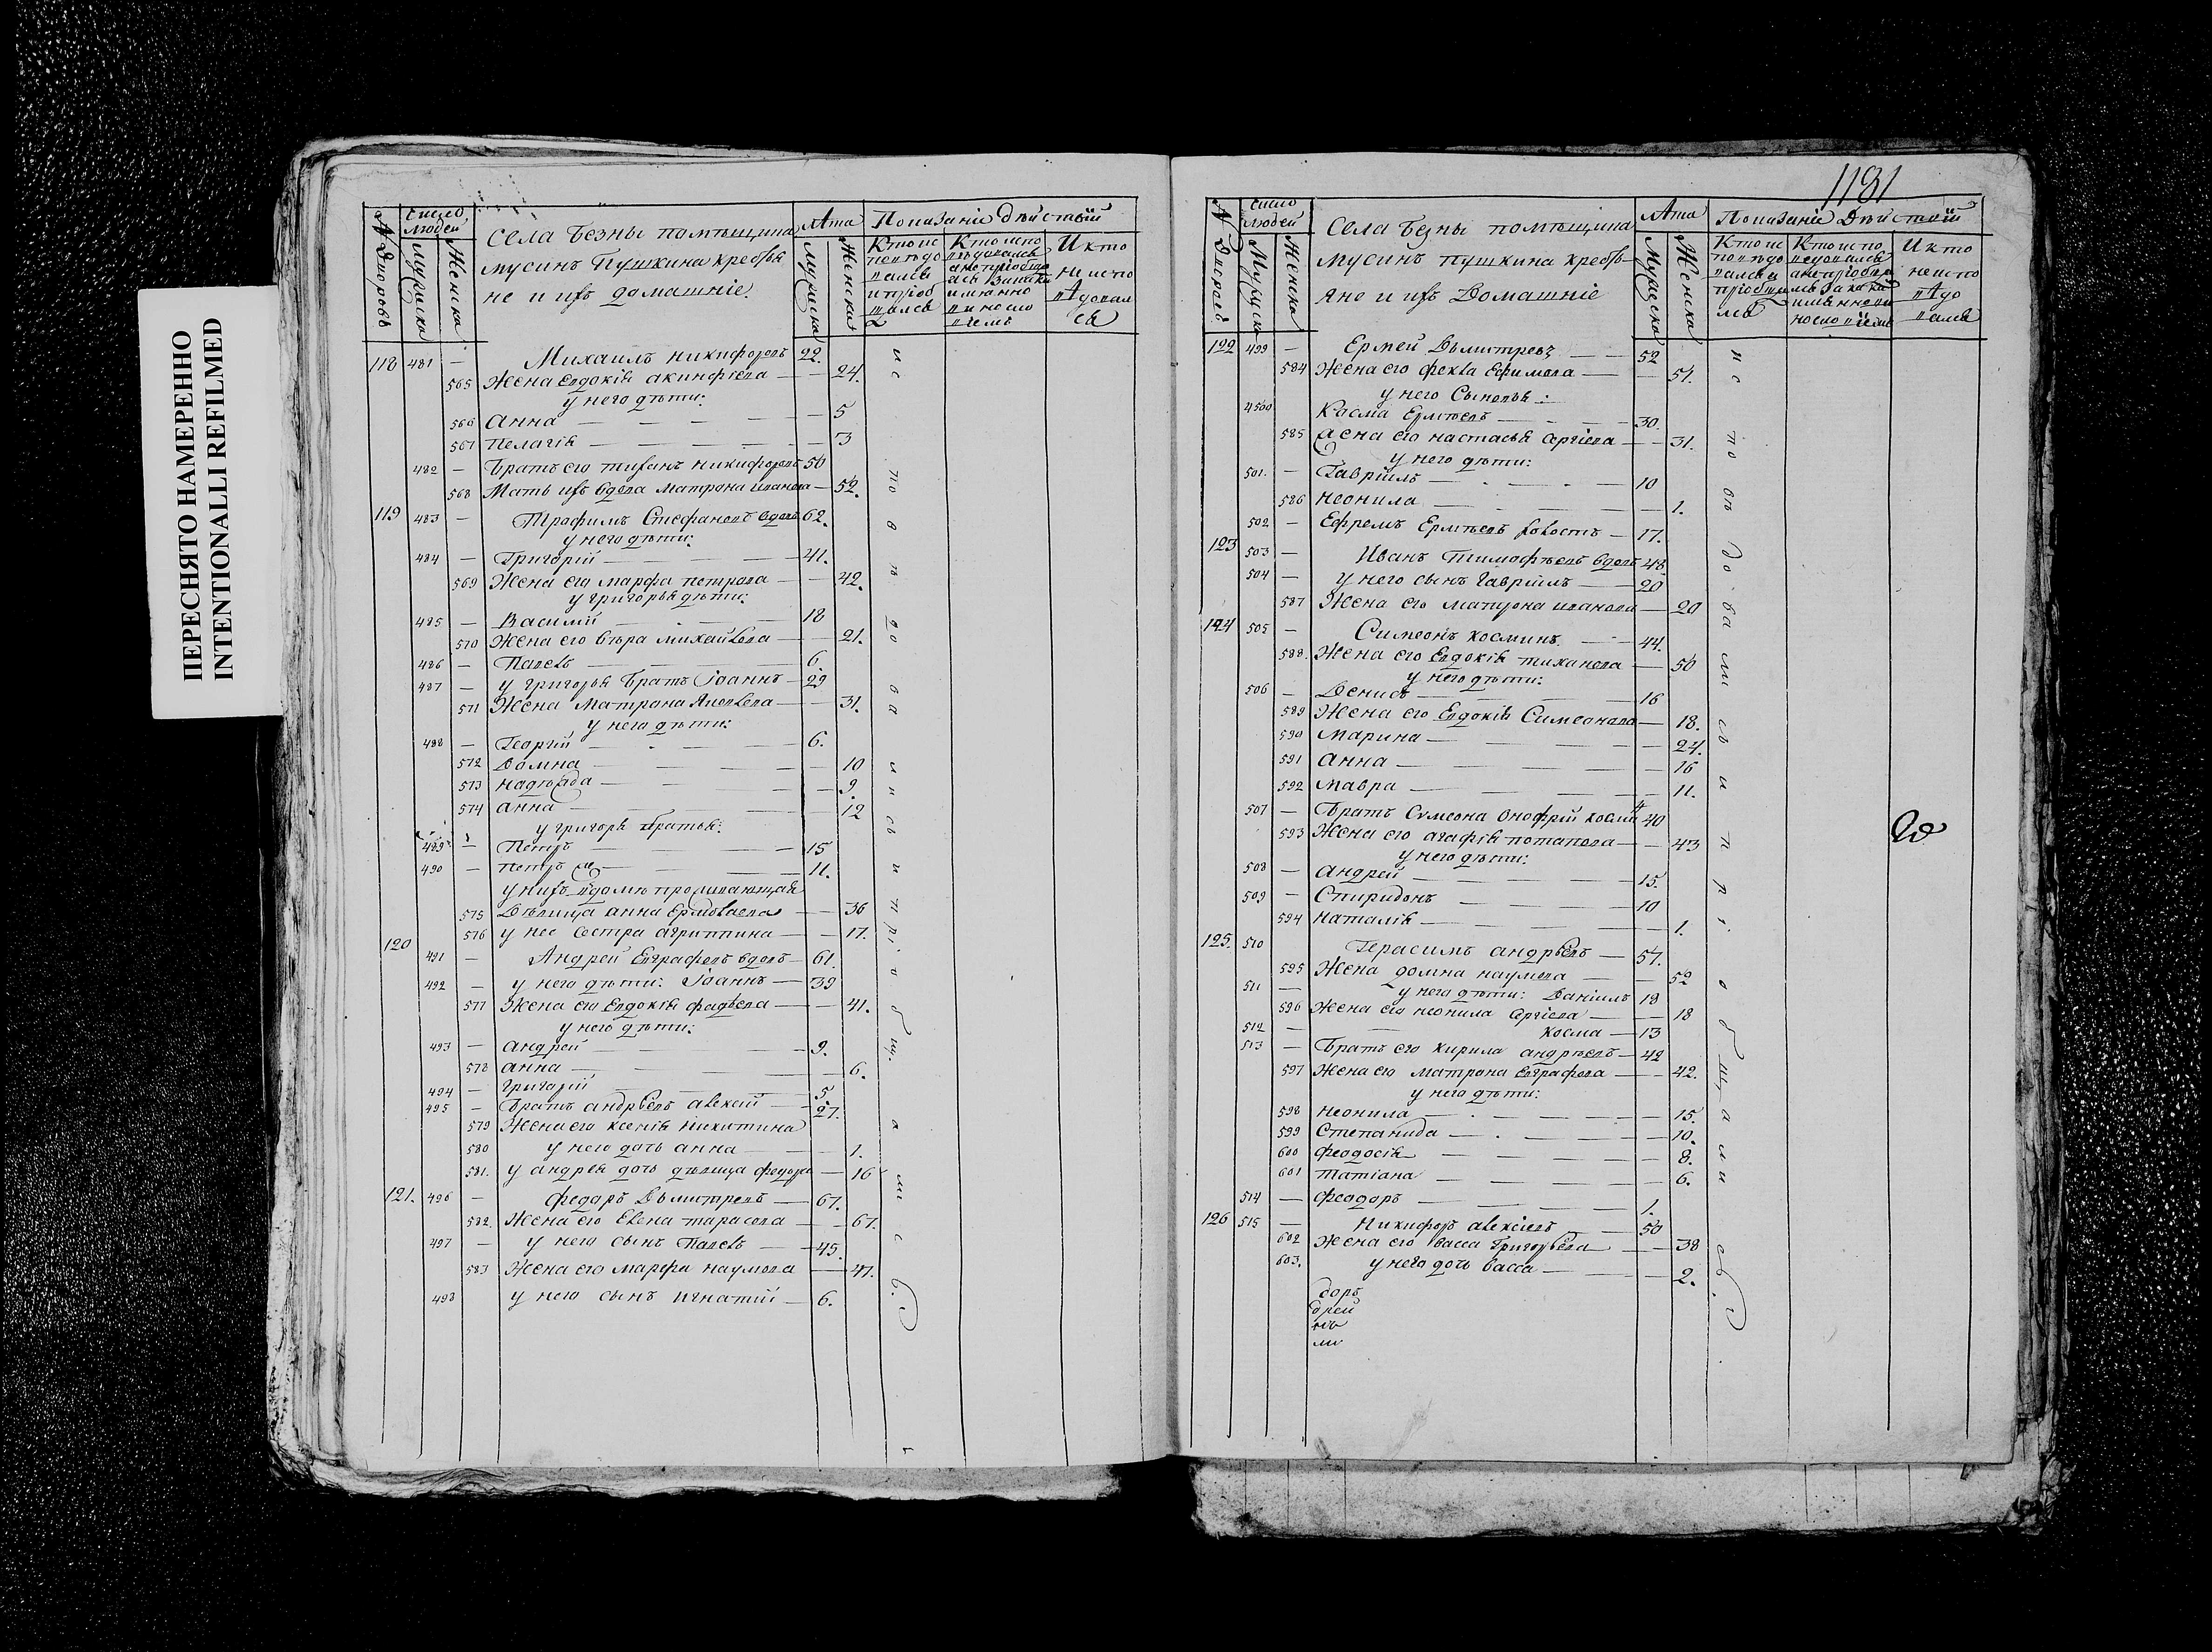 ПЕРЕСНЯТО НАМЕРЕННО
INTENTIONALLI REFILMED
N Дворовъ
Число людей
Мужеска
Женска
Села Безны помѣщика
мусинъ Пушкина крестья
не и ихъ домашніе.
Лѣта
Мужеска
Женска
Показаніе дѣйствій
И кто
не испо
вѣдовал
ся
118 481 — Михаилъ никифоровъ 22.
565 Жена Евдокія акинфіева — 24.
у него дѣти:
566 Анна — 5
567 Пелагія — 3
482 — Братъ его тиханъ никифоровъ 50
568 Мать ихъ вдова матрона иванова — 52.
119 483 — Трафимъ Стефановъ вдовъ 62.
у него дѣти:
484 — Григорій — 41.
569 Жена его марфа петрова — 42.
у григорья дѣти:
485 — Василий — 18
570 Жена его вѣра михайлова — 21.
486 — Павелъ — 6.
487 — у григорья братъ Іоаннъ — 29
571 Жена матрона Яковлева — 31.
у него дѣти:
488 — Георгій — 6.
572 Домна — 10
573 надежда — 9.
574 анна — 12
у григорья братья:
489 — Петръ — 15
490 — петръ — 11.
у нихъ в домѣ проживающая
575 Дѣвица анна Ермолаева — 36
576 у нее сестра агриппина — 17.
120 491 — Андрей Евграфовъ вдовъ — 61.
492 — у него дѣти: Іоаннъ — 39
577 Жена его Евдокія фадѣева — 41.
у него дѣти:
493 — андрей — 9.
578 анна — 6.
494 — григорій — 5.
495 — братъ андрѣевъ алексій — 27.
579 Жена его ксенія никитина
580 у него дочь анна — 1.
581. у андрея дочь дѣвица федора — 16
121. 496 — федоръ Дьмитревъ — 67.
582. Жена его Елена тарасова — 67.
497 — у него сынъ Павелъ — 45.
583 Жена его марфа наумова — 47.
498 у него сынъ игнатій — 6.
исповѣдовались и пріобщались
1181
N Дворовъ
Число людей
Мужеска
Женска
Села Безны помѣщика
мусинъ пушкина кресть
яне и ихъ Домашніе
Лѣта
Мужеска
Женска
Показаніе Дѣйствій
И кто
не испо
вѣдо
вался
122 499 — Ермей Дьмитревъ — 52
584 Жена его фекла Ефимова — 51.
у него Сыновья:
4500 Косма Ермѣевъ — 30.
585 Жена его настасья сергіева — 31.
у него дѣти:
501. — Гавріилъ — 10
586 неонила — 1.
502 — Ефремъ Ермѣевъ холостъ — 17.
123 503 — Иванъ Тимофѣевъ вдовъ 48
504 — у него сынъ гавріилъ — 20
587 Жена его матрона иванова — 20
124 505 — Симеонъ косминъ — 44.
588. Жена его Евдокія тиханова — 50
у него дѣти:
506 — Денисъ — 16
589 Жена его Евдокія Симеонова — 18.
590 Марина — 24.
591 анна — 16
592 мавра — 11.
507 — Братъ Симеона Онофрій косми 40
593 Жена его агафія потапова — 43
у него дѣти:
508 — андрей — 15.
509 — Спиридонъ — 10
594 наталія — 1.
125. 510 Герасимъ андрѣевъ — 57.
595 Жена домна наумова — 52
511 — у него дѣти: Даніилъ 18
596 Жена его неонила сергіева — 18
512 — косма — 13
513 — Братъ его кирила андрѣевъ — 42
597 Жена его матрона Евграфова — 42.
у него дѣти:
598 неонила — 15.
599 Степанида — 10.
600 феодосія — 8.
601 татіана — 6.
514 — феодоръ — 1.
126 515 — Никифоръ алексіевъ — 50
602 Жена его васса григорьева — 38
603. у него дочь васса — 2.
исповѣдовались и пріобщались.